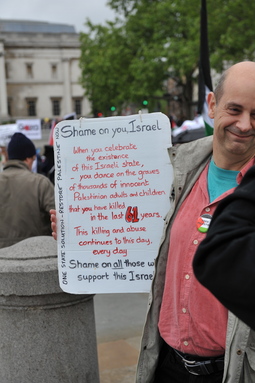 Shame on you, Israel
When you celebrate
the existence
of this Israeli state,
- you dance on the graves
of thousands of innocent
Palestinian adults and children
that you have killed
in the last 61 years.
This killing and abuse
continues to this day,
every day
Shame on all those w
support this Israe
ONE STATE SOLUTION - RESTORE PALESTINE NOW